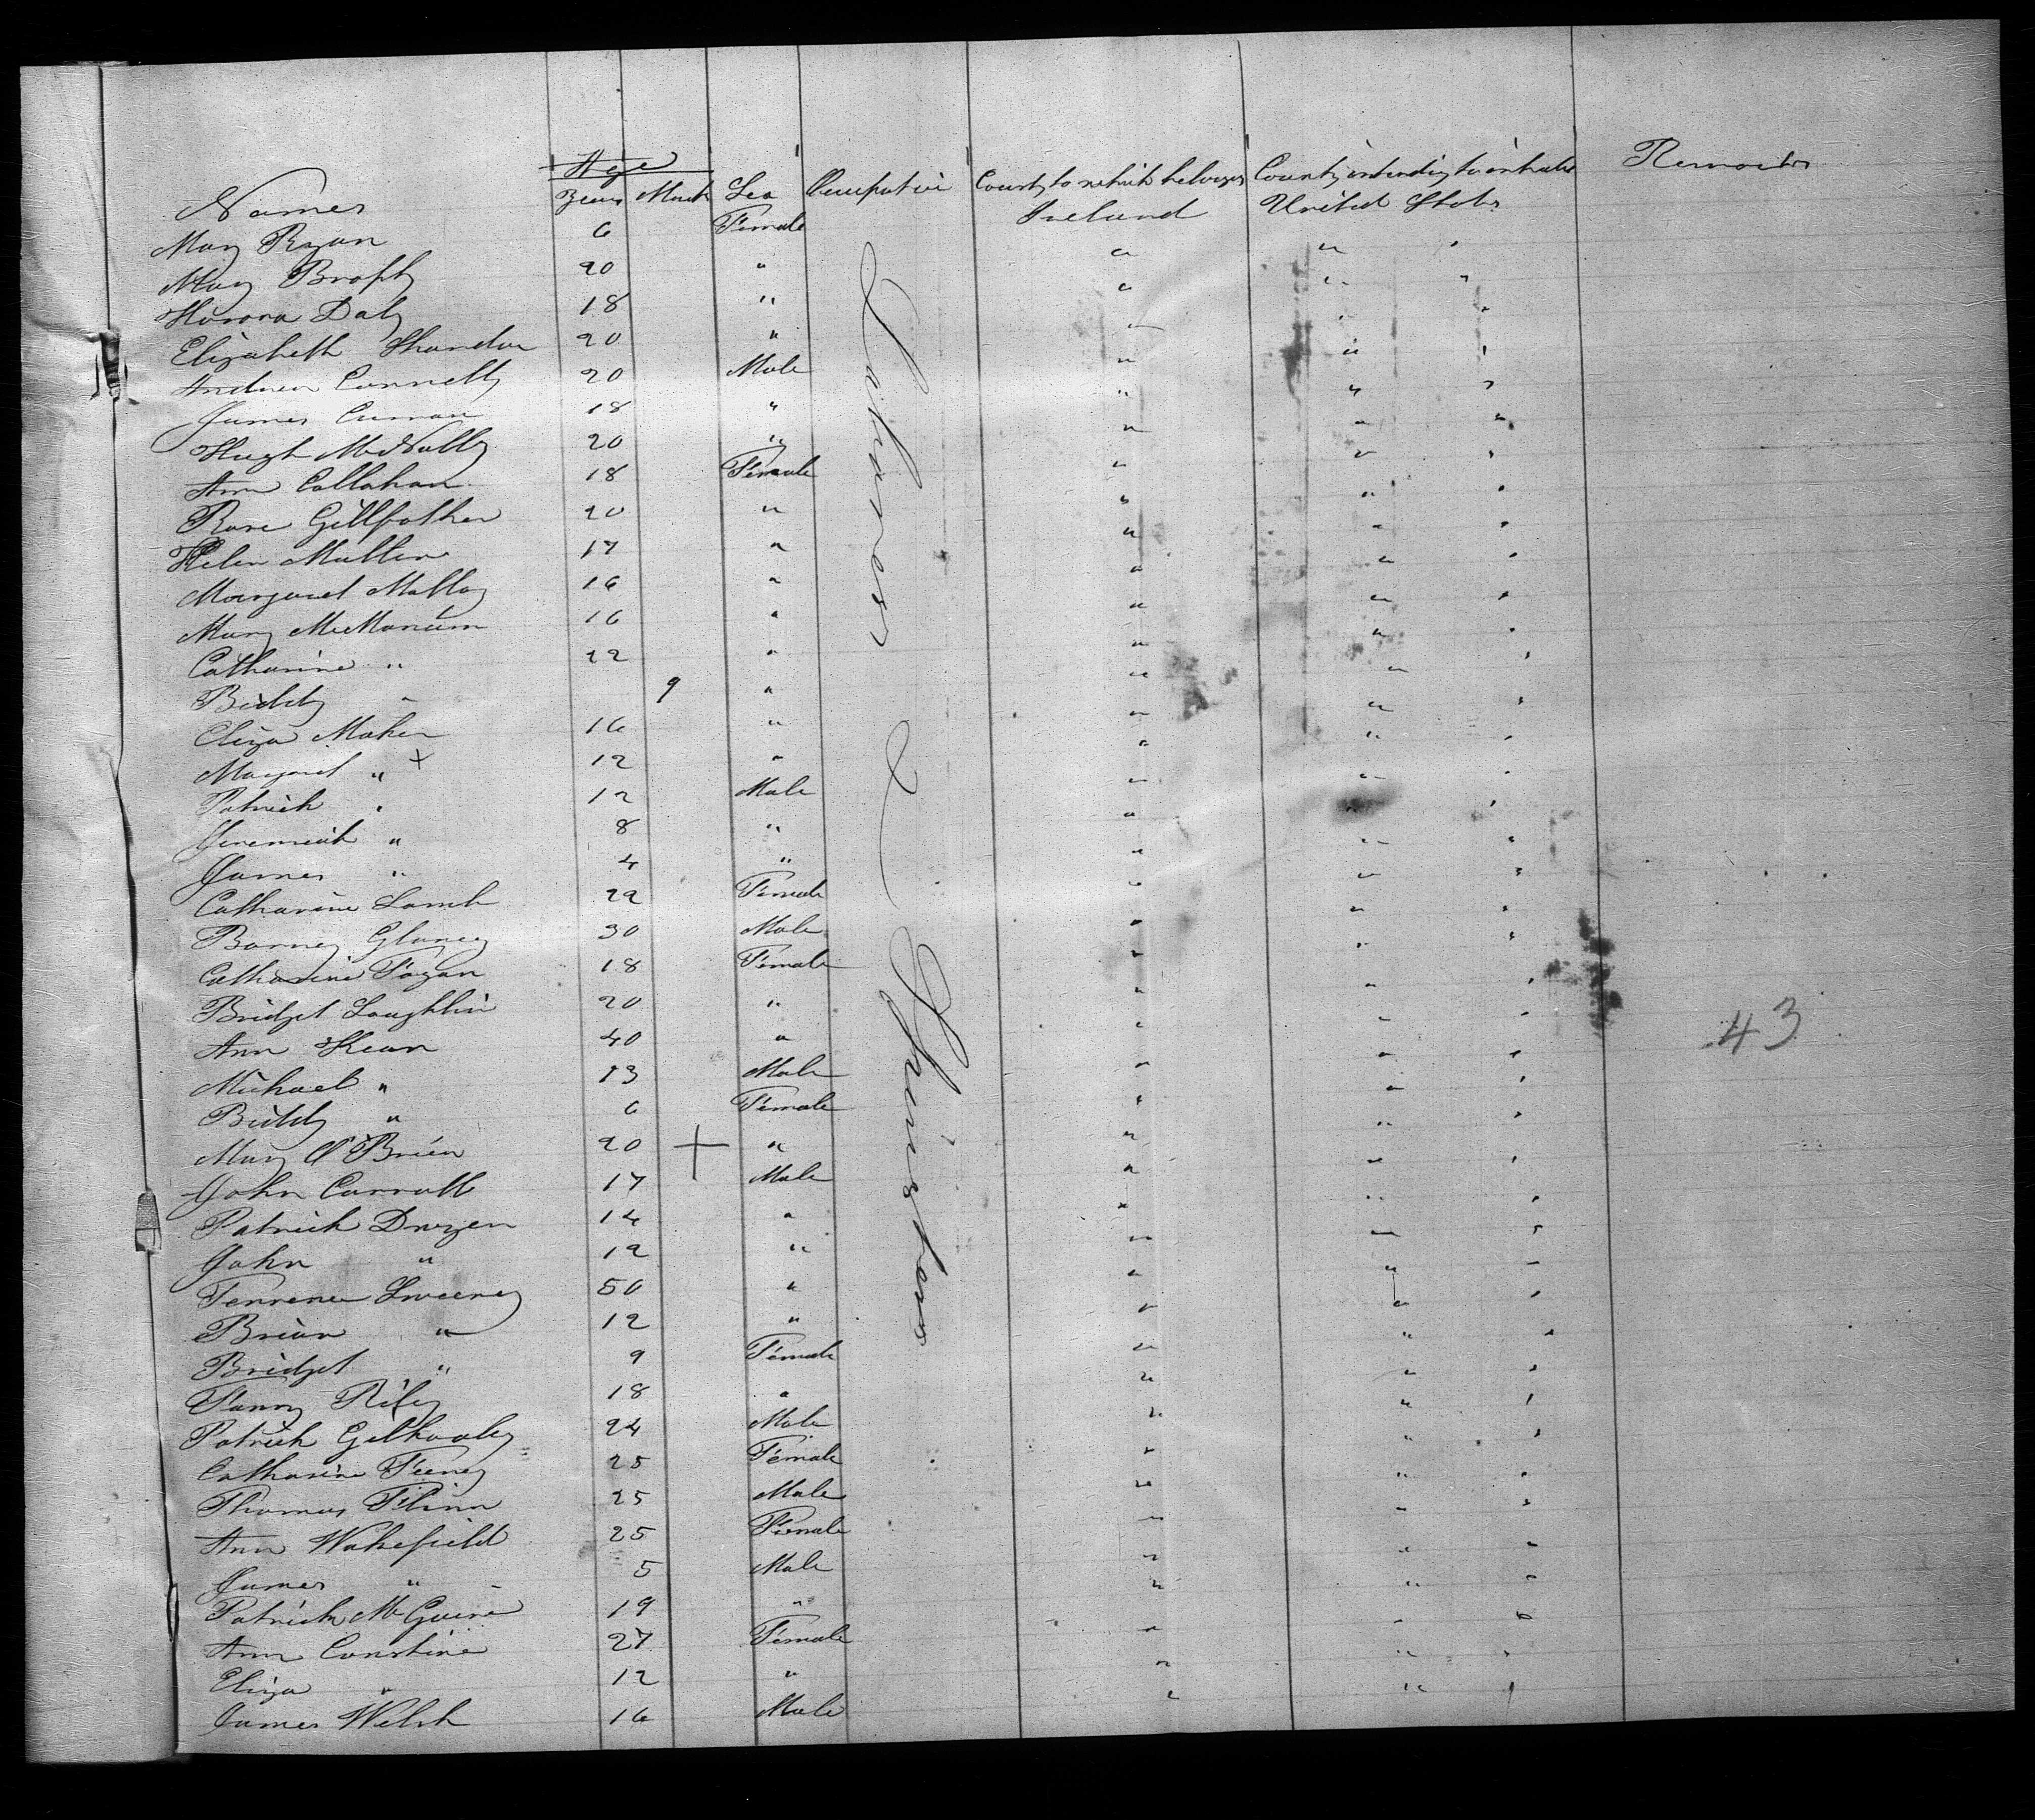 Names Age Years Month Sex Occupation Country to which belongs Country intending to inhabit Remarks
Mary Ryan 6 Female Ireland United States
Mary Brophy 20 " " " "
Honora Daly 18 " " " "
Elizabeth 20 " " " "
Andrew Connelly 20 Male " " "
James Curran 18 " " " "
Hugh McNally 20 " " " "
Ann Callahan 18 Female " " "
Rose Gillfather 20 " " " "
Helen Mullen 17 " " " "
Margaret Malloy 16 " " " "
Mary McManum 16 " " " "
Catharine " 22 " " " "
Biddy " 9 " " " "
Eliza Maher 16 " " " "
Margaret " + 12 " " " "
Patrick " 12 Male " " "
Jeremiah " 8 " " " "
James " 4 " " " "
Catharine Lamb 22 Female " " "
Barney Glancy 30 Male " " "
Catharine Fagan 18 Female " " "
Bridget Loughlin 20 " " " "
Ann Kean 40 " " " "
Michael " 13 Male " " "
Biddy " 6 Female " " "
Mary O'Brien 20 + " " " "
John Carroll 17 Male " " "
Patrick 14 " " " "
John " 12 " " " "
Terrence Sweeney 50 " " " "
Brian " 12 " " " "
Bridget " 9 Female " " "
Fanny Riley 18 " " " "
Patrick Gilhooley 24 Male " " "
Catharine Feeney 25 Female " " "
Thomas Flinn 25 Male " " "
Ann Wakefield 25 Female " " "
James " 5 Male " " "
Patrick McGuire 19 " " " "
Ann Constine 27 Female " " "
Eliza " 12 " " " "
James Welsh 16 Male " " "
Labourers & Spinsters
43